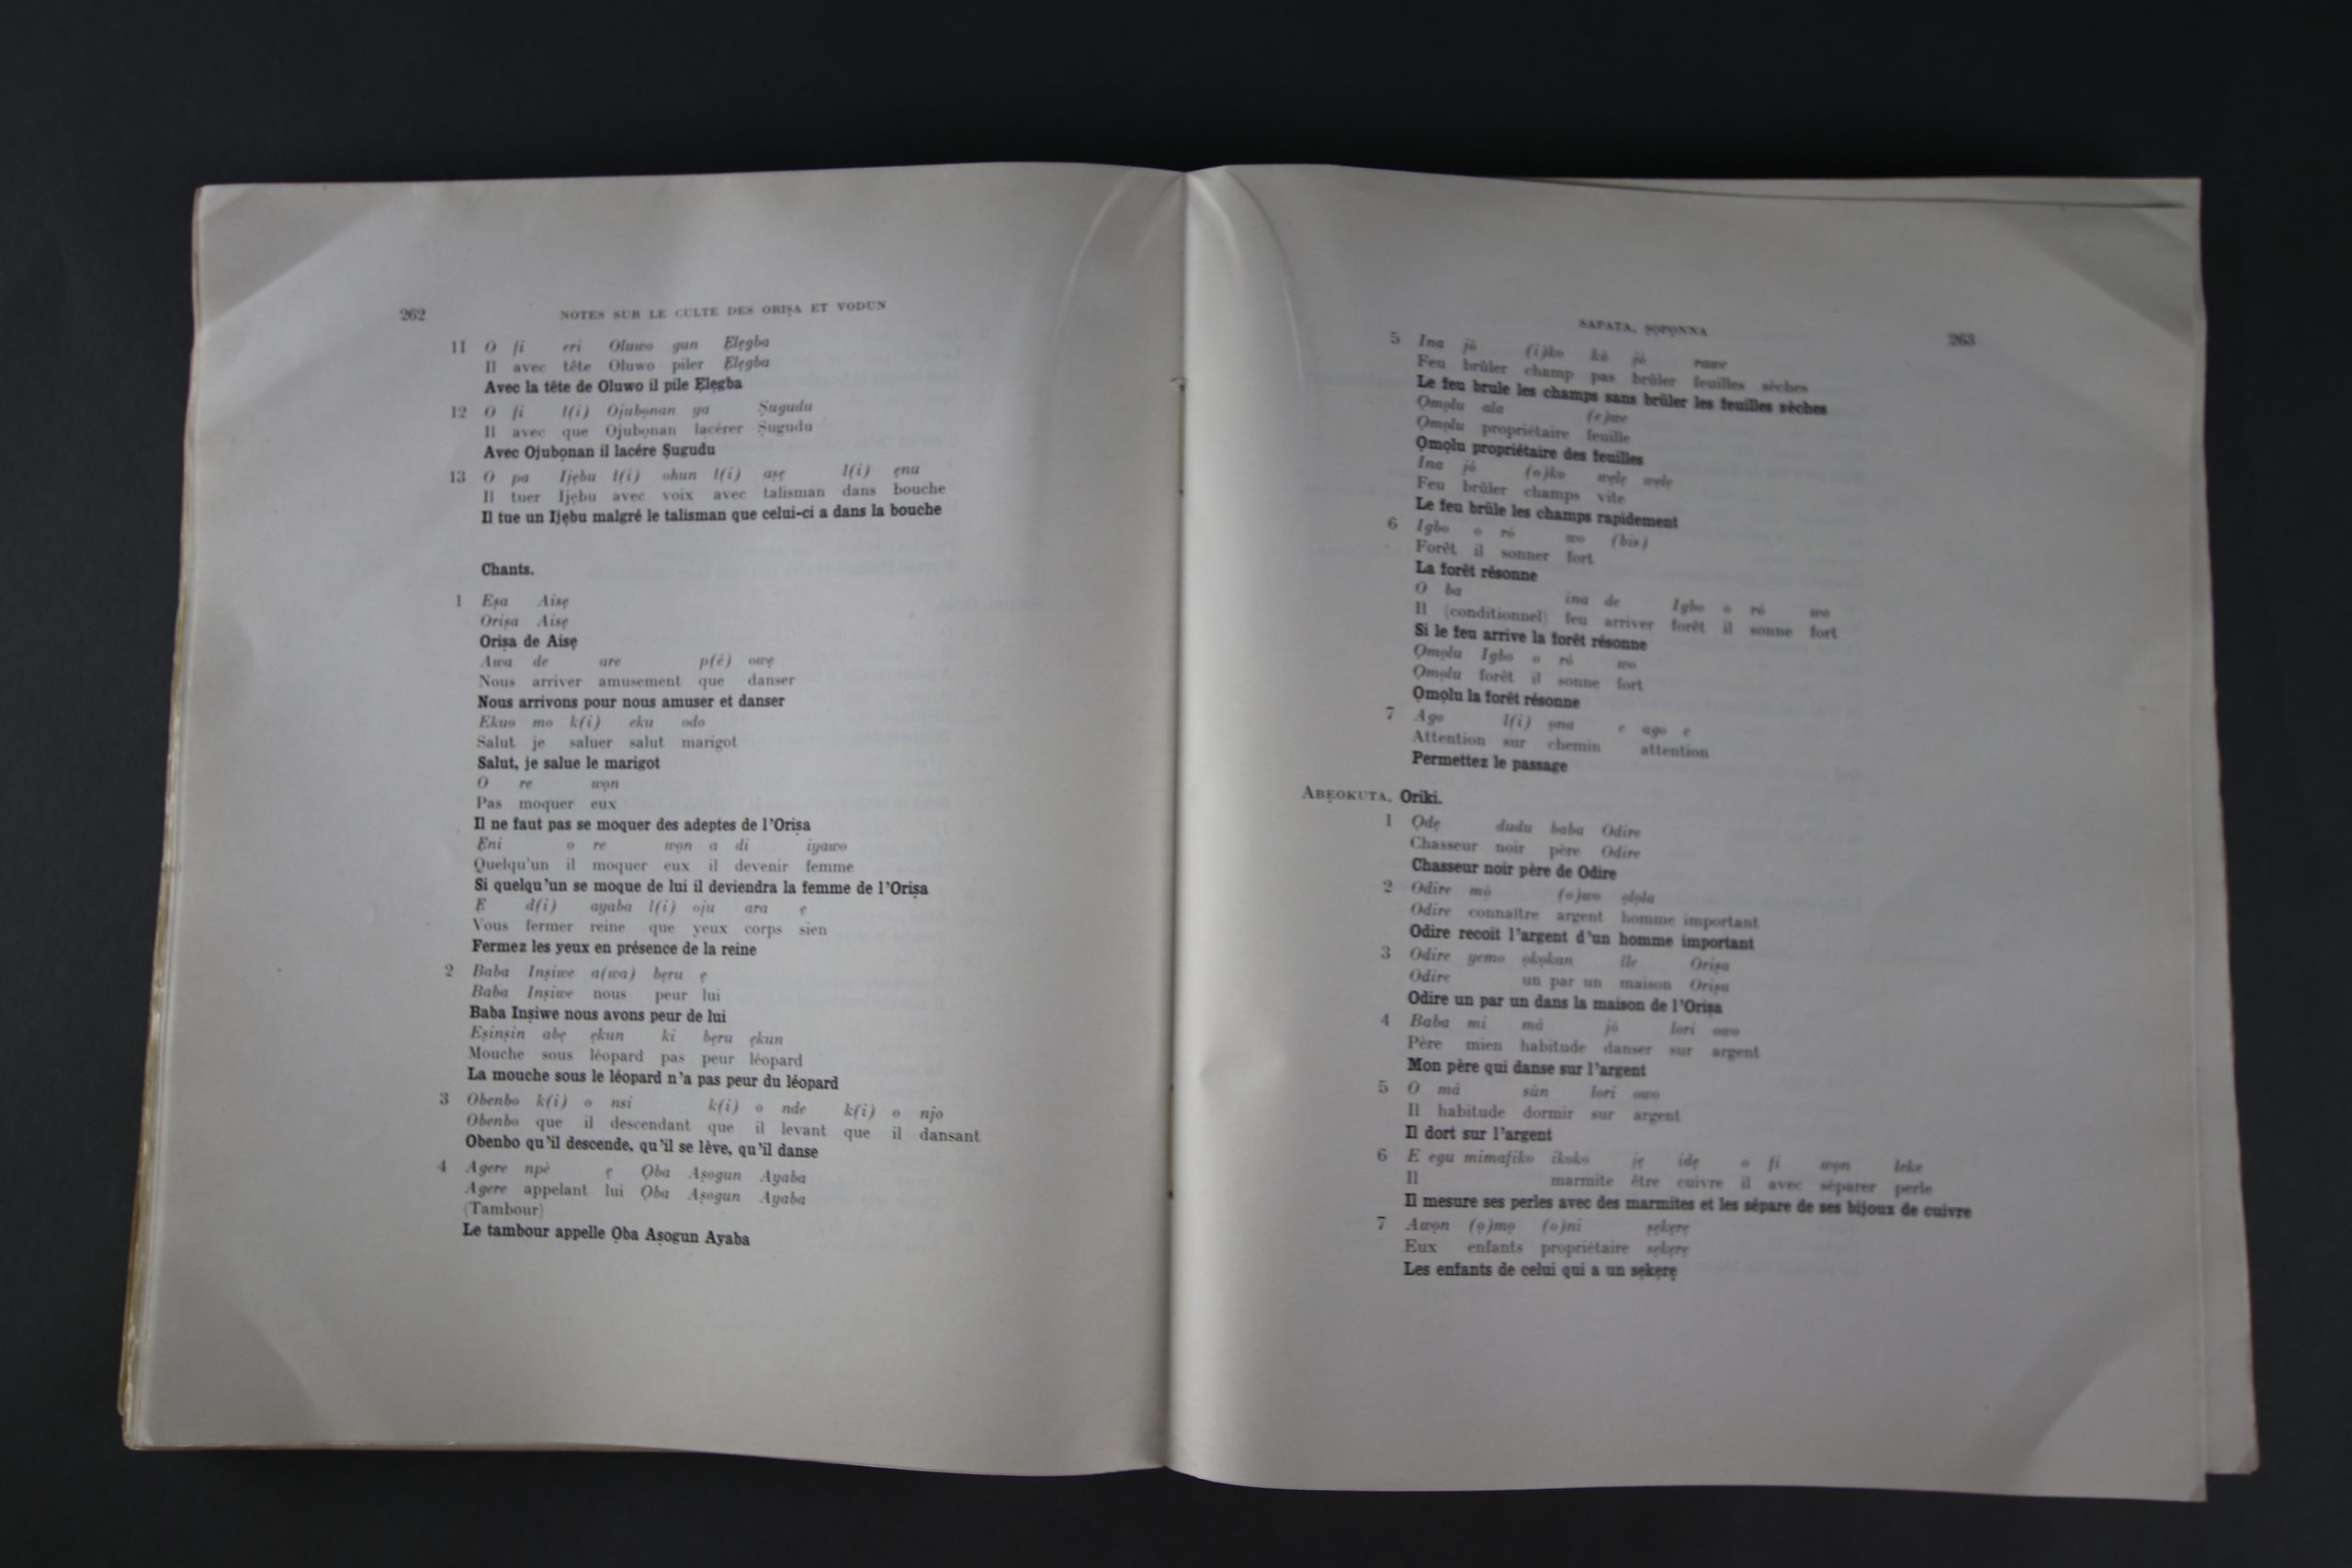 262 NOTES SUR LE CULTE DES ORIṢA ET VODUN
11 O fi eri Oluwo gun Ẹlẹgba
Il avec tête Oluwo piler Ẹlẹgba
Avec la tête de Oluwo il pile Ẹlẹgba
12 O fi l(i) Ojubọnan ya Ṣugudu
Il avec que Ojubọnan lacérer Ṣugudu
Avec Ojubọnan il lacére Ṣugudu
13 O pa Ijẹbu l(i) ohun l(i) aṣẹ l(i) ẹnu
Il tuer Ijẹbu avec voix avec talisman dans bouche
Il tue un Ijẹbu malgré le talisman que celui-ci a dans la bouche
Chants.
1 Eṣa Aisẹ
Oriṣa Aisẹ
Oriṣa de Aisẹ
Awa de are p(é) owẹ
Nous arriver amusement que danser
Nous arrivons pour nous amuser et danser
Ekuo mo k(i) eku odo
Salut je saluer salut marigot
Salut, je salue le marigot
O re wọn
Pas moquer eux
Il ne faut pas se moquer des adeptes de l'Oriṣa
Ẹni o re wọn a di iyawo
Quelqu'un il moquer eux il devenir femme
Si quelqu'un se moque de lui il deviendra la femme de l'Oriṣa
Ẹ d(i) ayaba l(i) oju ara ẹ
Vous fermer reine que yeux corps sien
Fermez les yeux en présence de la reine
2 Baba Inṣiwe a(wa) bẹru ẹ
Baba Inṣiwe nous peur lui
Baba Inṣiwe nous avons peur de lui
Eṣinṣin abẹ ẹkun ki bẹru ẹkun
Mouche sous léopard pas peur léopard
La mouche sous le léopard n'a pas peur du léopard
3 Obenbo k(i) o nsi k(i) o nde k(i) o njo
Obenbo que il descendant que il levant que il dansant
Obenbo qu'il descende, qu'il se lève, qu'il danse
4 Agere npè ẹ Ọba Aṣogun Ayaba
Agere appelant lui Ọba Aṣogun Ayaba
(Tambour)
Le tambour appelle Ọba Aṣogun Ayaba
SAPATA, ṢỌPỌNNA 263
5 Ina jó (i)ko kò jó rawe
Feu brûler champ pas brûler feuilles sèches
Le feu brule les champs sans brûler les feuilles sèches
Ọmọlu ala (e)we
Ọmọlu propriétaire feuille
Ọmọlu propriétaire des feuilles
Ina jó (o)ko wẹlẹ wẹlẹ
Feu brûler champs vite
Le feu brûle les champs rapidement
6 Igbo o ró wo (bis)
Forêt il sonner fort
La forêt résonne
O ba ina de Igbo o ró wo
Il (conditionnel) feu arriver forêt il sonne fort
Si le feu arrive la forêt résonne
Ọmọlu Igbo o ró wo
Ọmọlu forêt il sonne fort
Ọmọlu la forêt résonne
7 Ago l(i) ọna e ago e
Attention sur chemin attention
Permettez le passage
ABẸOKUTA, Oriki.
1 Ọdẹ dudu baba Odire
Chasseur noir père Odire
Chasseur noir père de Odire
2 Odire mò (o)wo ọlọla
Odire connaître argent homme important
Odire recoit l'argent d'un homme important
3 Odire yemo ọkọkan Ile Oriṣa
Odire un par un maison Oriṣa
Odire un par un dans la maison de l'Oriṣa
4 Baba mi má jó lori owo
Père mien habitude danser sur argent
Mon père qui danse sur l'argent
5 O má sùn lori owo
Il habitude dormir sur argent
Il dort sur l'argent
6 E egu mimafiko ikoko jẹ idẹ o fi wọn leke
Il marmite être cuivre il avec séparer perle
Il mesure ses perles avec des marmites et les sépare de ses bijoux de cuivre
7 Awọn (ọ)mọ (o)ni ṣẹkẹrẹ
Eux enfants propriétaire ṣẹkẹrẹ
Les enfants de celui qui a un ṣẹkẹrẹ